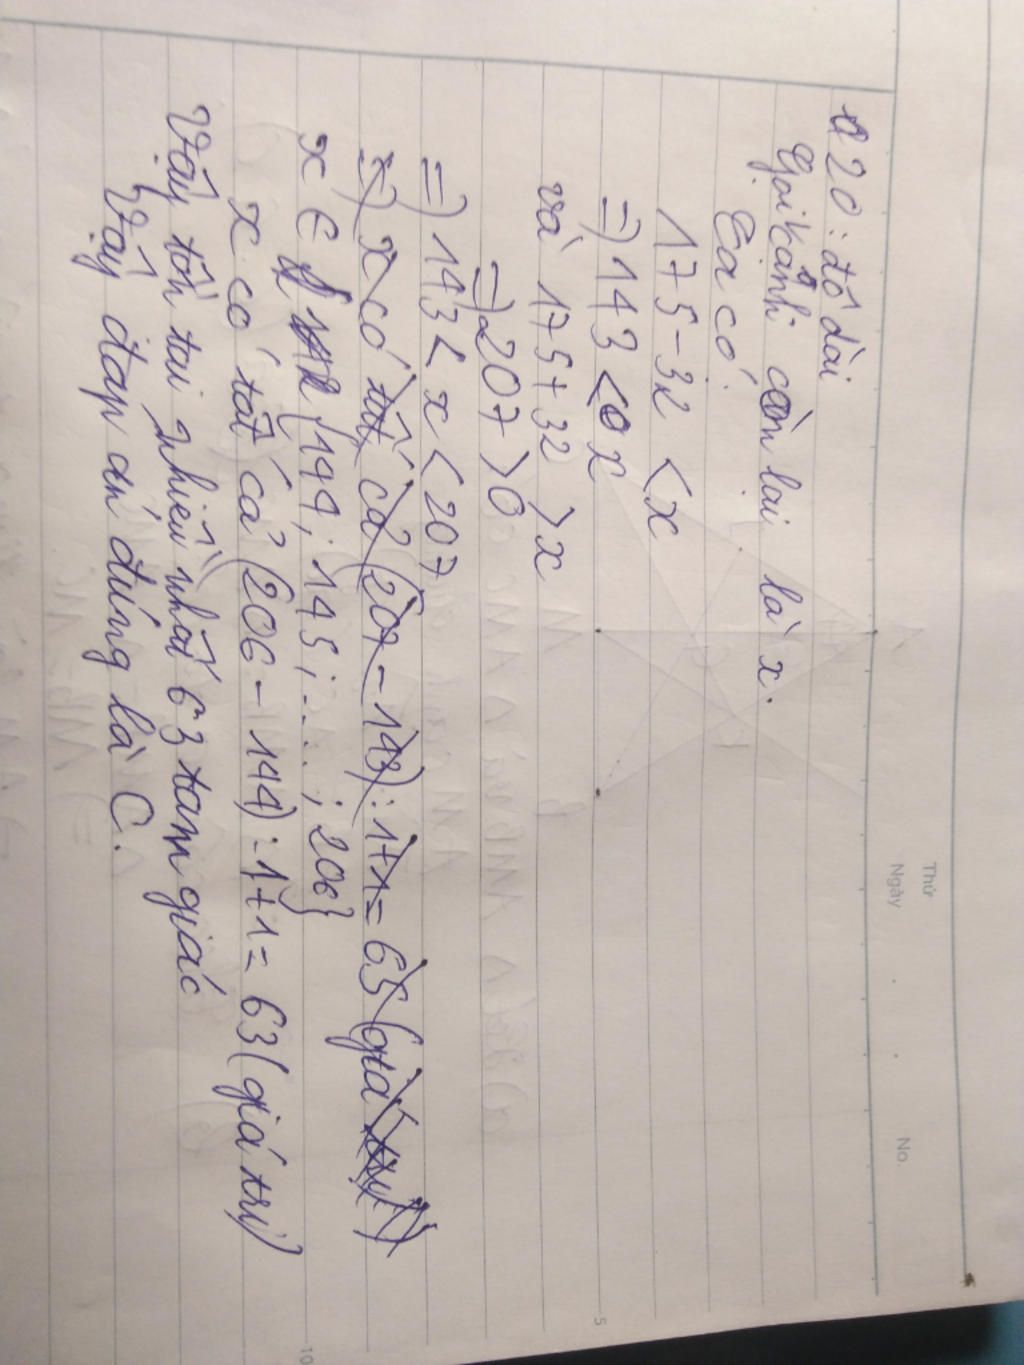 Thứ
Ngày
No
Q 20: độ dài
Gọi cạnh còn lại là x.
Ta có:
175-32 < x
=) 143 < x
và 175+32 > x
=) 207 > 0
=) 143 < x < 207
=) x có tất cả (207-143):1+1= 65 (giá trị)
x ∈ {144; 145; ....; 206}
x có tất cả (206-144):1+1= 63 (giá trị)
Vậy tồn tại nhiều nhất 63 tam giác
Vậy đáp án đúng là C.
5
10